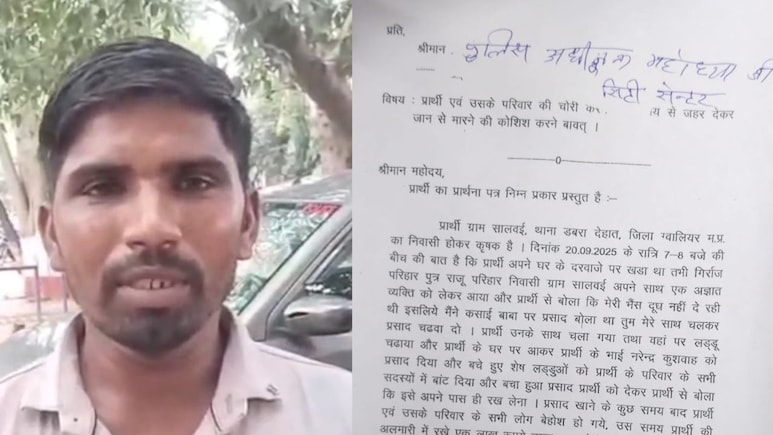 प्रति,
श्रीमान पुलिस अधीक्षक महोदया जी
सिटी सेन्टर
विषय : प्रार्थी एवं उसके परिवार की चोरी से जहर देकर
जान से मारने की कोशिश करने बावत् ।
0
श्रीमान महोदय,
प्रार्थी का प्रार्थना पत्र निम्न प्रकार प्रस्तुत है :-
प्रार्थी ग्राम सालवई, थाना डबरा देहात, जिला ग्वालियर म.प्र.
का निवासी होकर कृषक है । दिनांक 20.09.2025 के रात्रि 7-8 बजे की
बीच की बात है कि प्रार्थी अपने घर के दरवाजे पर खडा था तभी गिर्राज
परिहार पुत्र राजू परिहार निवासी ग्राम सालवई अपने साथ एक अज्ञात
व्यक्ति को लेकर आया और प्रार्थी से बोला कि मेरी भैंस दूध नहीं दे रही
थी इसलिये मैंने कसाई बाबा पर प्रसाद बोला था तुम मेरे साथ चलकर
प्रसाद चढवा दो । प्रार्थी उनके साथ चला गया तथा वहां पर लड्डू
चढाया और प्रार्थी के घर पर आकर प्रार्थी के भाई नरेन्द्र कुशवाह को
प्रसाद दिया और बचे हुए शेष लड्डुओं को प्रार्थी के परिवार के सभी
सदस्यों में बांट दिया और बचा हुआ प्रसाद प्रार्थी को देकर प्रार्थी से बोला
कि इसे अपने पास ही रख लेना । प्रसाद खाने के कुछ समय बाद प्रार्थी
एवं उसके परिवार के सभी लोग बेहोश हो गये, उस समय प्रार्थी की
अलमारी में रखे एक लाख रूपये